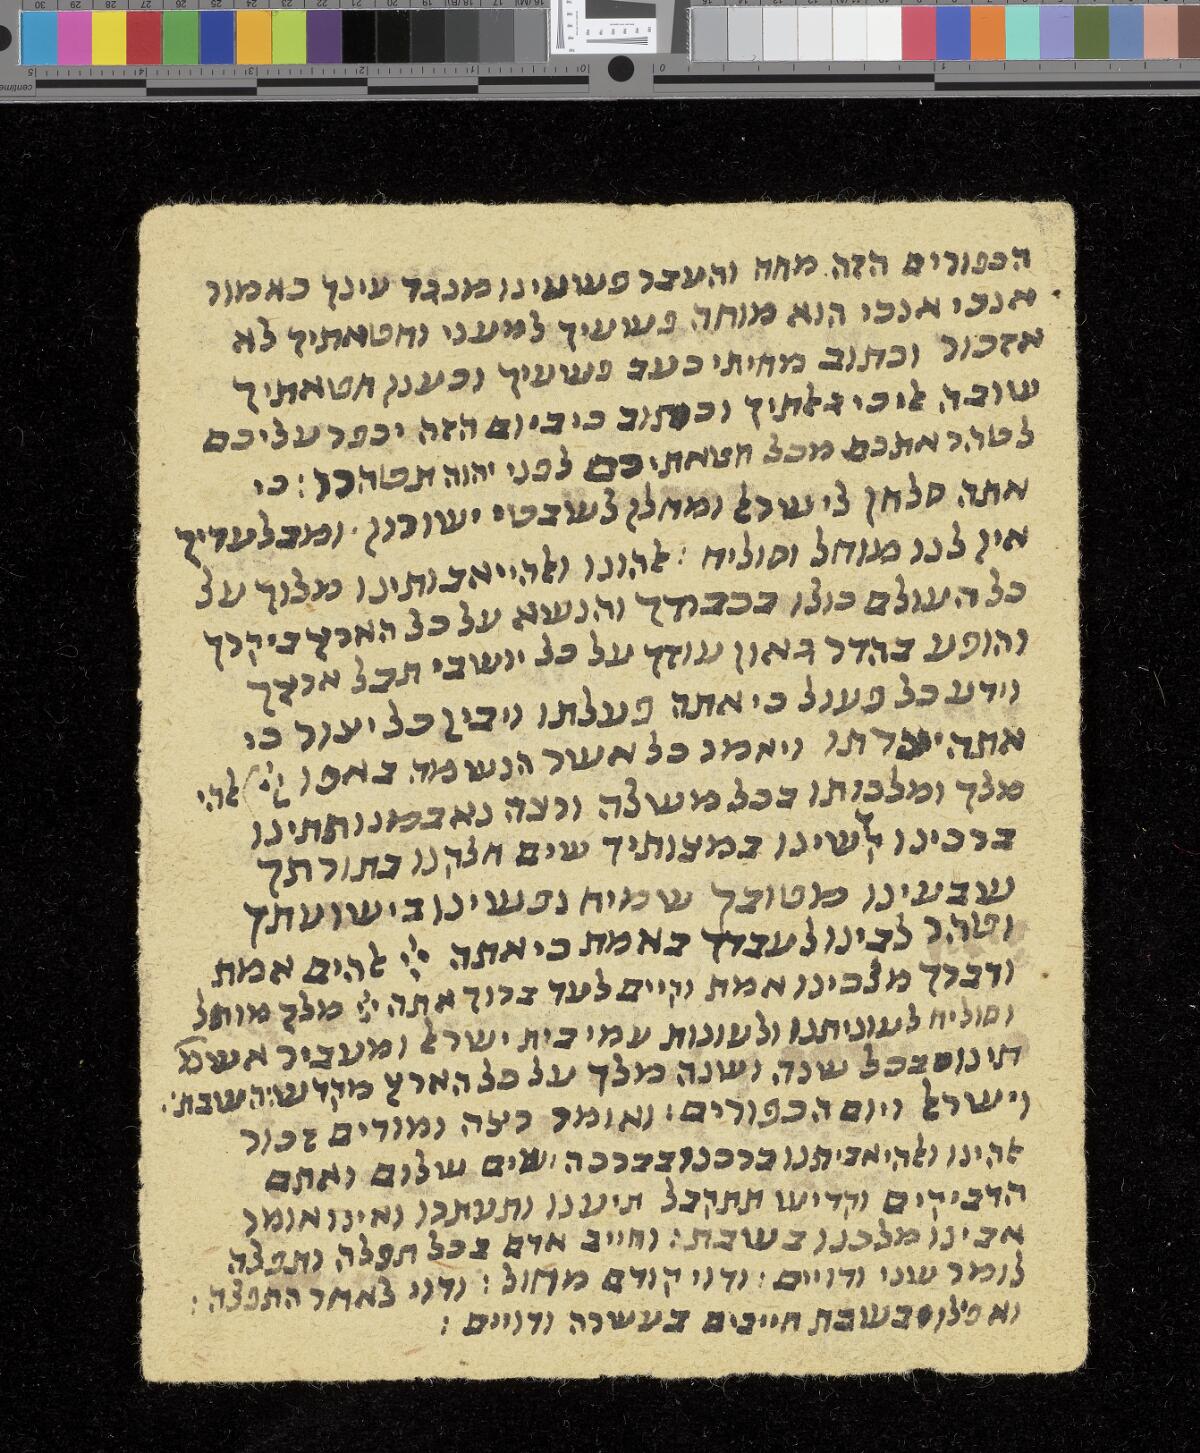 הכפורים הזה. מחה והעבר פשעינו מנגד עינך כאמור
אנכי אנכי הוא מוחה פשעיך למעני וחטאתיך לא
אזכור וכתוב מחיתי כעב פשעיך וכענן חטאתיך
שובה אלי כי גאלתיך וכתוב כי ביום הזה יכפר עליכם
לטהר אתכם מכל חטאתיכם לפני יהוה תטהרו: כי
אתה סלחן לישראל ומחלן לשבטי ישורון. ומבלעדיך
אין לנו מוחל וסוליח: אלהינו ואלהי אבותינו מלוך על
כל העולם כולו בכבודך והנשא על כל הארץ ביקרך
והופע בהדר גאון עוזך על כל יושבי תבל ארצך
וידע כל פעול כי אתה פעלתו ויבין כל יצור כי
אתה יצרתו ויאמר כל אשר הנשמה באפו ייי אלהי
מלך ומלכותו בכל משלה ורצה נא במנוחתינו
ברכינו קדשינו במצותיך שים חלקנו בתורתך
שבעינו מטובך שמיח נפשינו בישועתך
וטהר לבינו לעבדך באמת כי אתה ייי אלהים אמת
ודברך מלכינו אמת וקיים לעד ברוך אתה ייי מלך מוחל
וסוליח לעוניתנו ולעונות עמי בית ישראל ומעביר אשמ
תינו בכל שנה ושנה מלך על כל הארץ מקדש השבת:
וישראל ויום הכפורים: ואומר רצה ומודים זכור
אלהינו ואלהי אביתנו ברכנו בברכה שים שלום ואתם
הדביקים וקדיש תתקבל תיענו ותעתרו ואינו אומר
אבינו מלכנו בשבת: וחייב אדם בכל תפלה ותפלה
לומר שני ודויים: ודוי קודם מחול: ודוי לאחר התפלה:
ואפילו בשבת חייבים בעשרה ודויים: